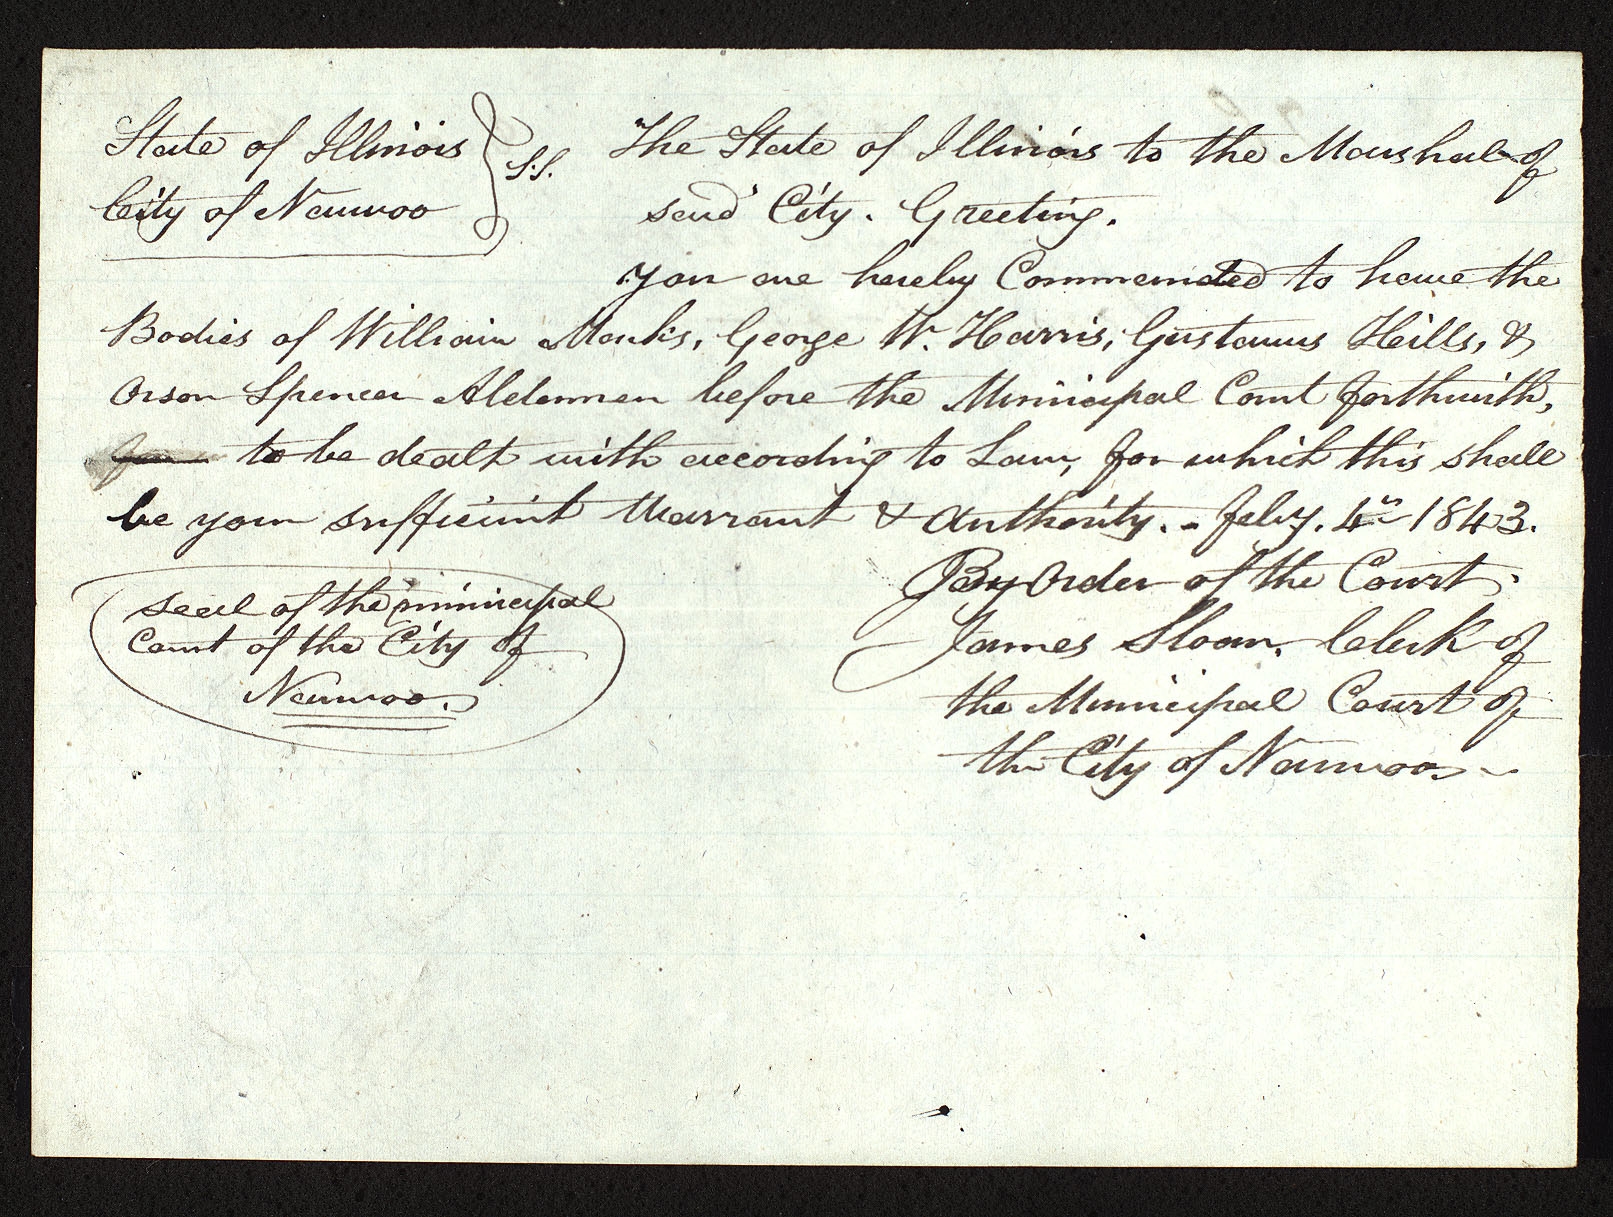 State of Illinois } S.S. The State of Illinois to the Marshal of
City of Nauvoo said City. Greeting.
You are hereby Commanded to have the
Bodies of William Marks, George W. Harris, Gustavus Hills, &
Orson Spencer Aldermen before the Municipal Court forthwith,
to be dealt with according to Law, for which this shall
be your sufficient Warrant & Authority. - Feby. 4th 1843.
By Order of the Court.
James Sloan. Clerk of
the Municipal Court of
the City of Nauvoo
Seal of the municipal
Court of the City of
Nauvoo.